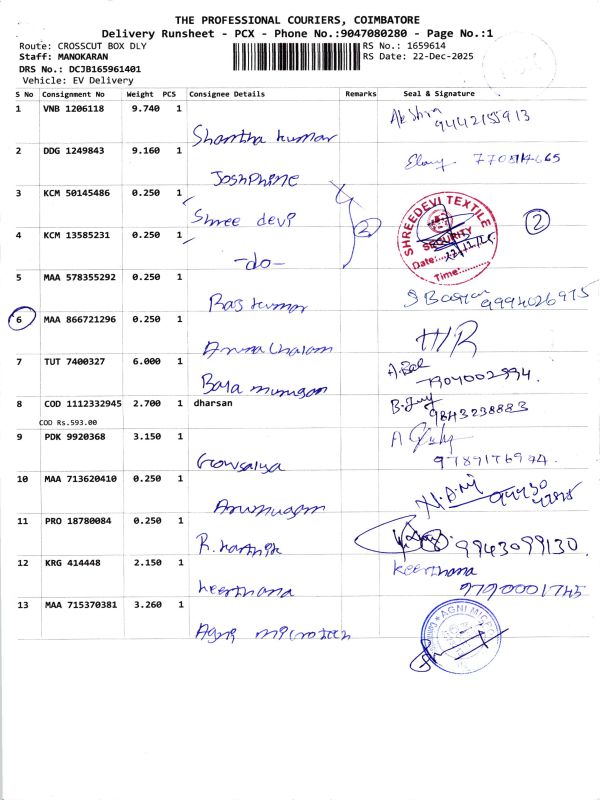 THE PROFESSIONAL COURIERS, COIMBATORE
Delivery Runsheet - PCX - Phone No.:9047080280 - Page No.:1
Route: CROSSCUT BOX DLY
RS No.: 1659614
Staff: MANOKARAN
RS Date: 22-Dec-2025
DRS No.: DCJB165961401
Vehicle: EV Delivery
S No Consignment No Weight PCS Consignee Details Remarks Seal & Signature
1 VNB 1206118 9.740 1 Shantha kumar 9442155913
2 DDG 1249843 9.160 1 Joshphine
3 KCM 50145486 0.250 1 Shree devi 2
4 KCM 13585231 0.250 1 -do-
SHREEDEVI TEXTILE
SECURITY
Date: 22/12/25
Time:
2
5 MAA 578355292 0.250 1 Raj kumar 9994026975
6 MAA 866721296 0.250 1 Arunachalam H/R
7 TUT 7400327 6.000 1 Bala murugan 7904002994
8 COD 1112332945 2.700 1 dharsan 9843238883
COD Rs.593.00
9 PDK 9920368 3.150 1 Gowsalya
10 MAA 713620410 0.250 1 Arumugam
11 PRO 18780084 0.250 1 R. karthik 9943099130
12 KRG 414448 2.150 1 keerthana keerthana
9790001745
13 MAA 715370381 3.260 1 Agni microtech
AGNI